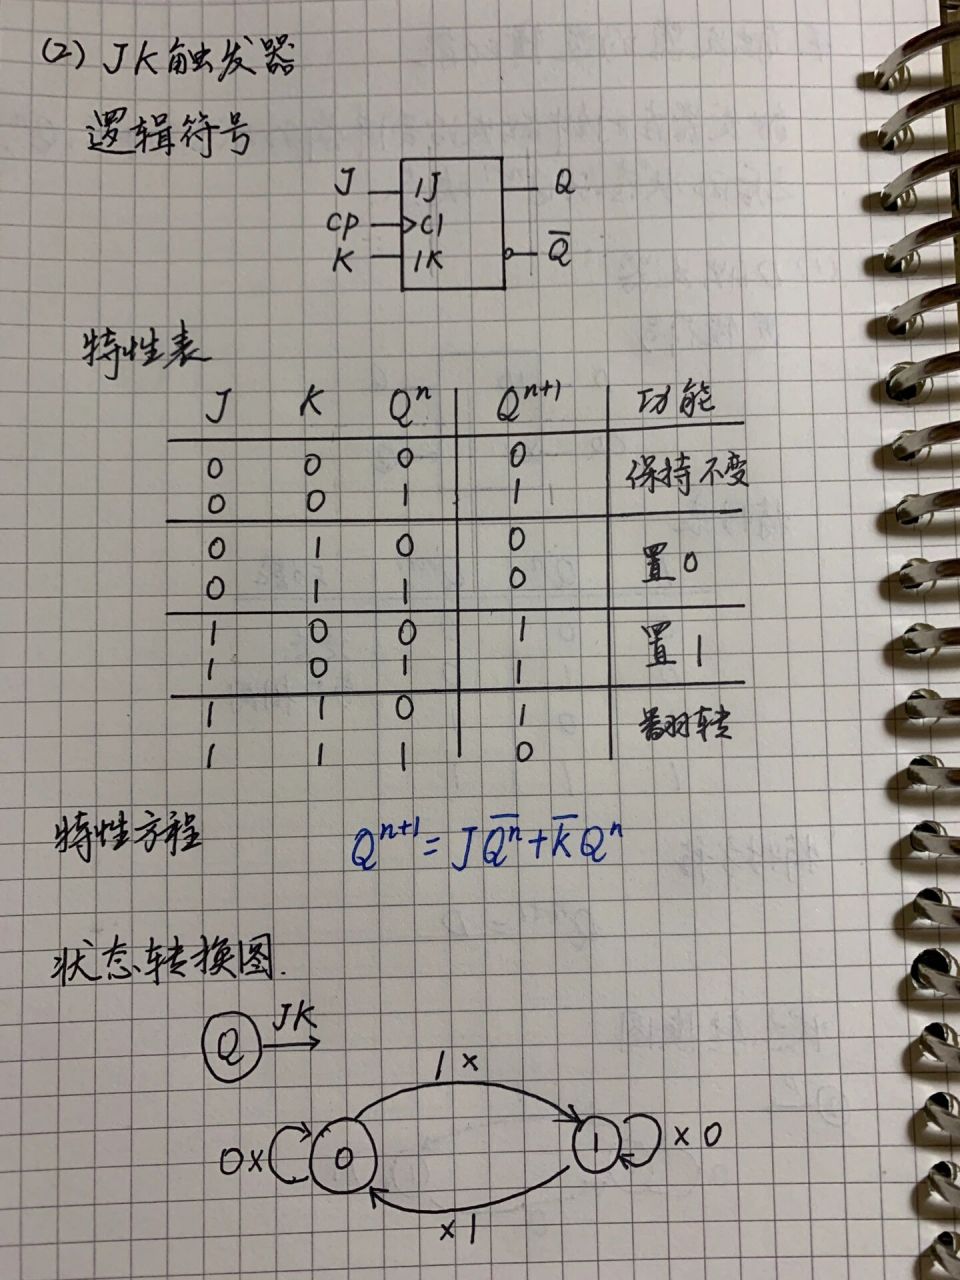 (2) JK触发器
逻辑符号
J 1J Q
CP C1
K 1K Q̅
特性表
J K Qⁿ Qⁿ⁺¹ 功能
0 0 0 0
0 0 1 1
保持不变
0 1 0 0
0 1 1 0
置0
1 0 0 1
1 0 1 1
置1
1 1 0 1
1 1 1 0
翻转
特性方程 Qⁿ⁺¹=JQ̅ⁿ+K̅Qⁿ
状态转换图.
Q JK
1×
0× 0 1 ×0
×1